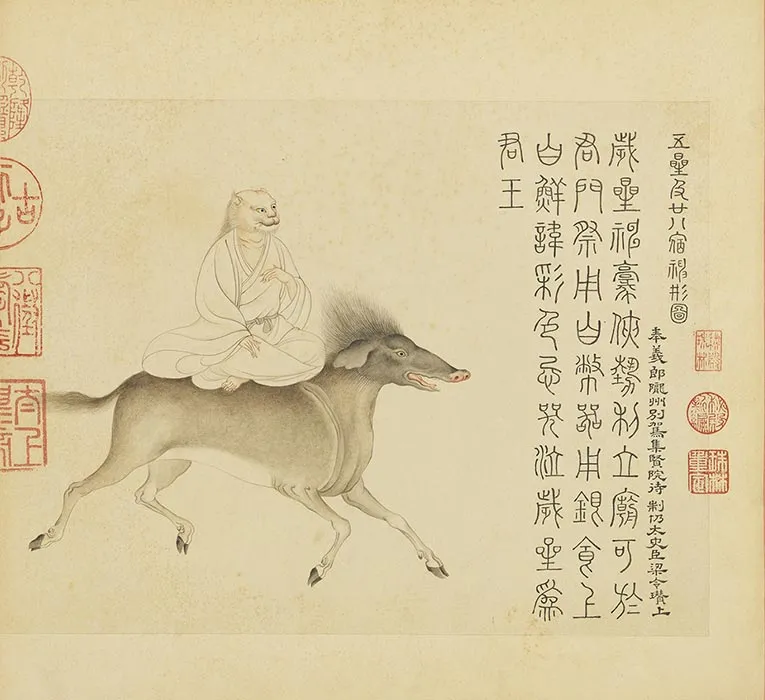 五星及廿八宿神形圖
奉義郎隴州別駕集賢院待制仍太史臣梁令瓚上
歲星神豪俠勢利立廟可於
君門祭用白幣器用銀食上
白鮮諱彩色忌哭泣歲星為
君王